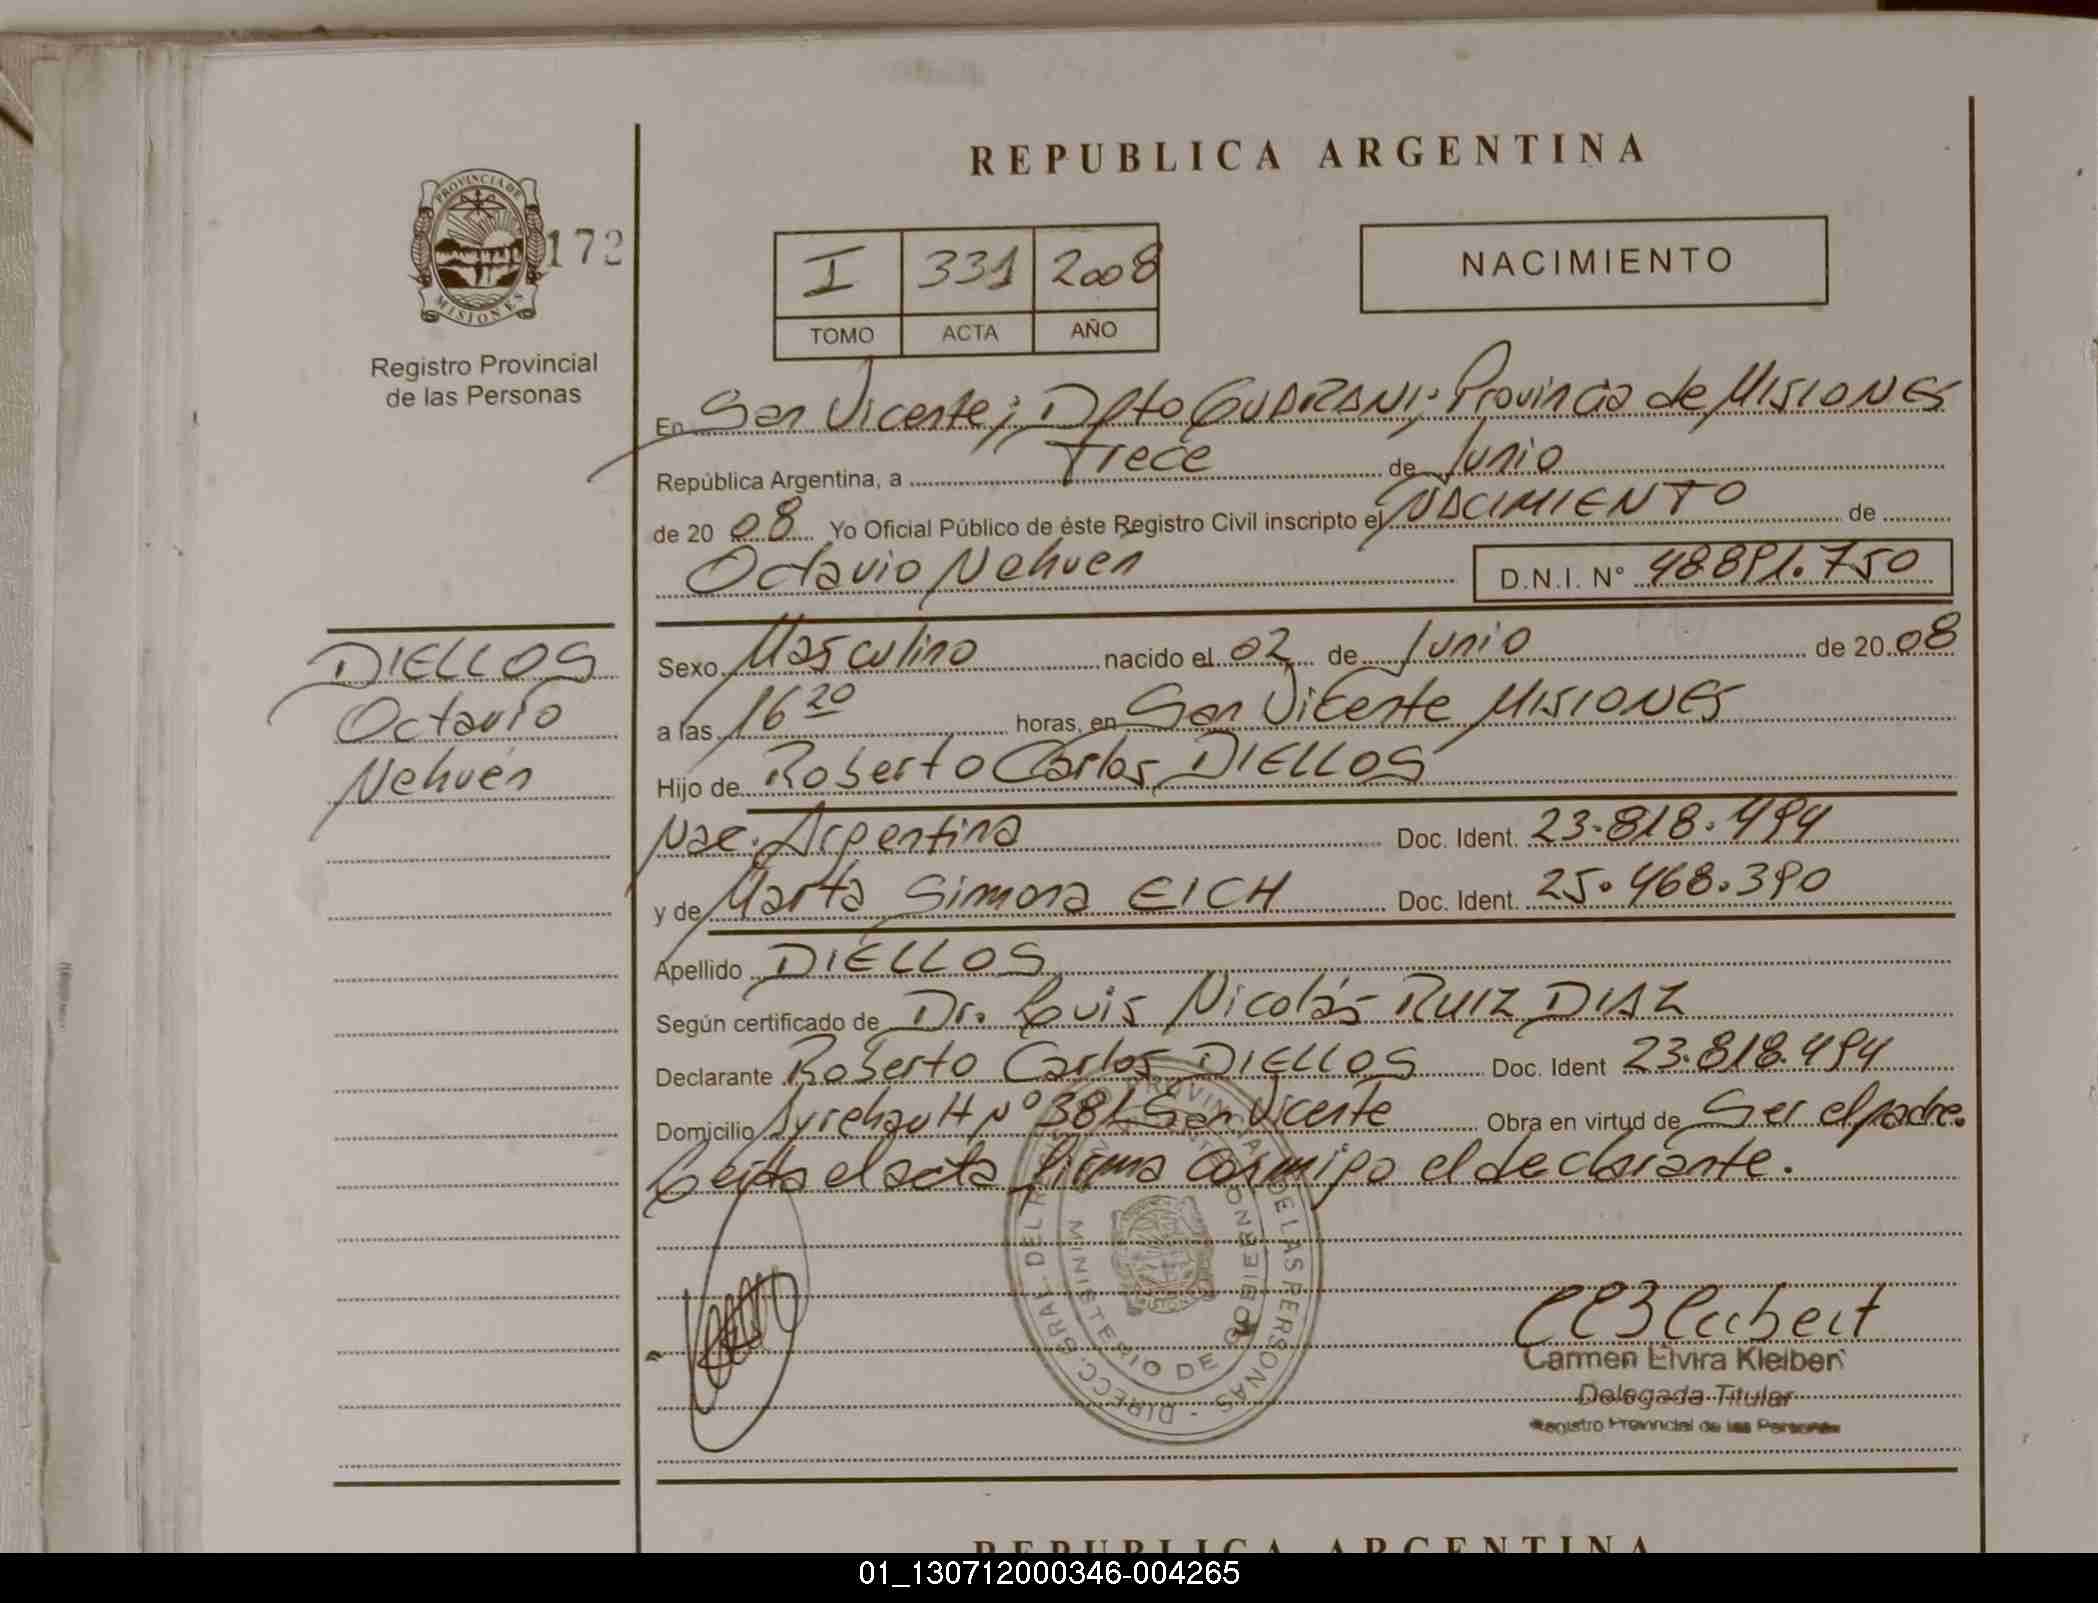 REPUBLICA ARGENTINA
PROVINCIA DE
MISIONES
172
Registro Provincial
de las Personas
I 331 2008
TOMO ACTA AÑO
NACIMIENTO
En San Vicente; Dpto GUARANI; Provincia de MISIONES
República Argentina, a Trece de Junio
de 2008 Yo Oficial Público de éste Registro Civil inscripto el NACIMIENTO de
Octavio Nehuen D.N.I. Nº 48.891.750
DIELLOS
Octavio
Nehuén
Sexo Masculino nacido el 02 de Junio de 2008
a las 16 20 horas, en San Vicente MISIONES
Hijo de Roberto Carlos DIELLOS
Nac. Argentina Doc. Ident. 23.818.494
y de Marta Simona EICH Doc. Ident. 25.468.390
Apellido DIELLOS
Según certificado de Dr. Luis Nicolás RUIZ DIAZ
Declarante Roberto Carlos DIELLOS Doc. Ident 23.818.494
Domicilio Nº 381 San Vicente Obra en virtud de Ser el padre.
Leida el acta firma conmigo el declarante.
DIRECC. GRAL. DEL REGISTRO PROVINCIAL DE LAS PERSONAS
MINISTERIO DE GOBIERNO
Carmen Elvira Kleibert
Delegada Titular
Registro Provincial de las Personas
REPUBLICA ARGENTINA
01_130712000346-004265